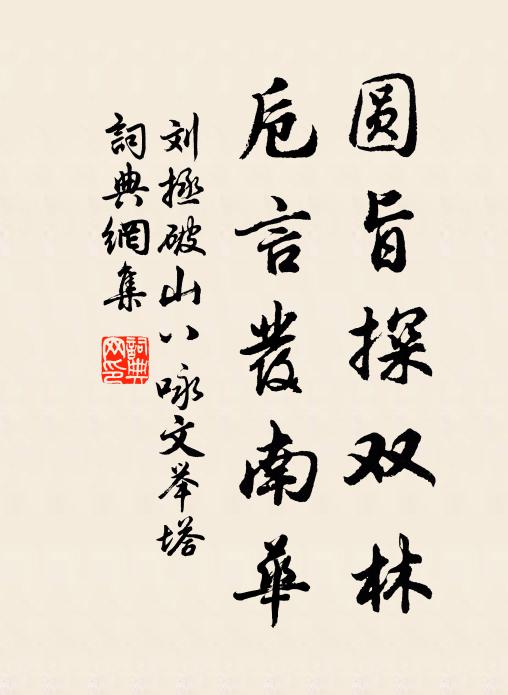 圆旨探双林
卮言發南華
刘拯破山八咏文举塔
詞典網集
詞典網印